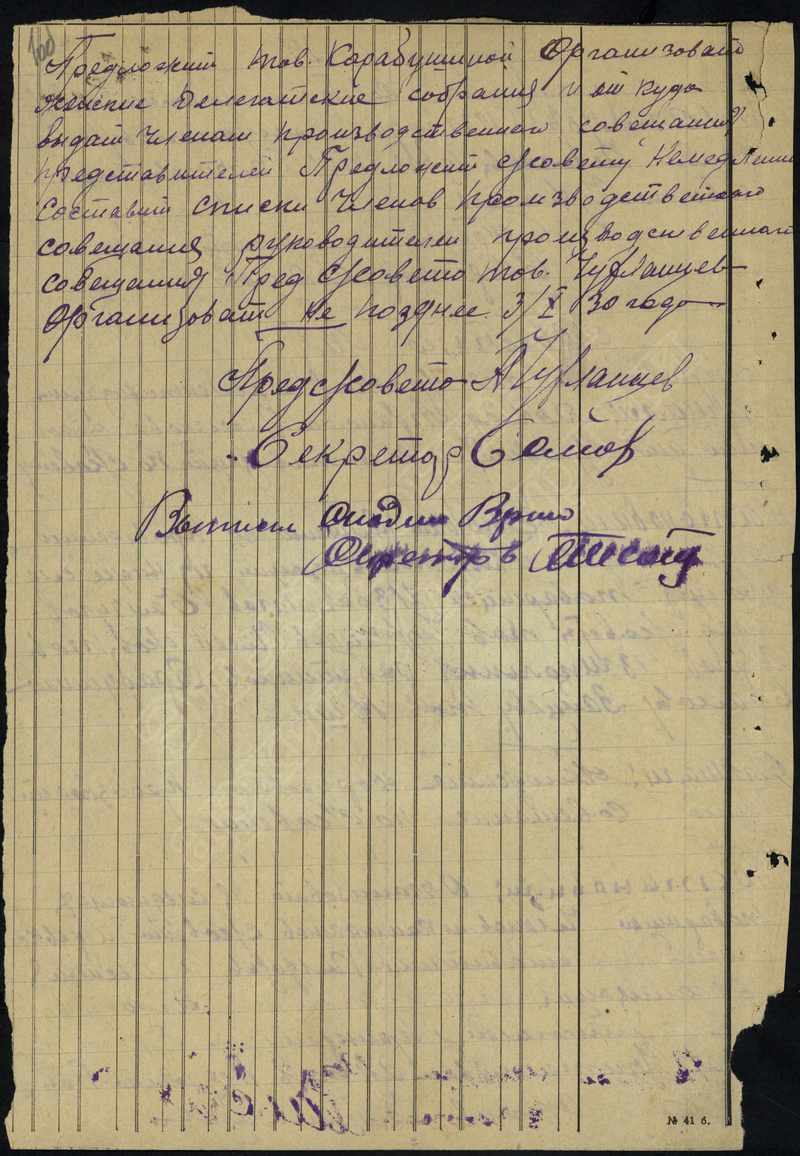 100
Предложит тов. Карабушиной Организоват
женские делегатские собрания и от куда
выдат членам производственного совещания
представителей Предложит с/совету немедленно
составит списки членов производственого
совещания руководителем производственного
совещания Пред с/совета тов. Чурланцев
Организоват не позднее 3/X 30 года
Пред с/совета А Чурланцев
Секретар
Выписи
Секретар в
№ 41 б.